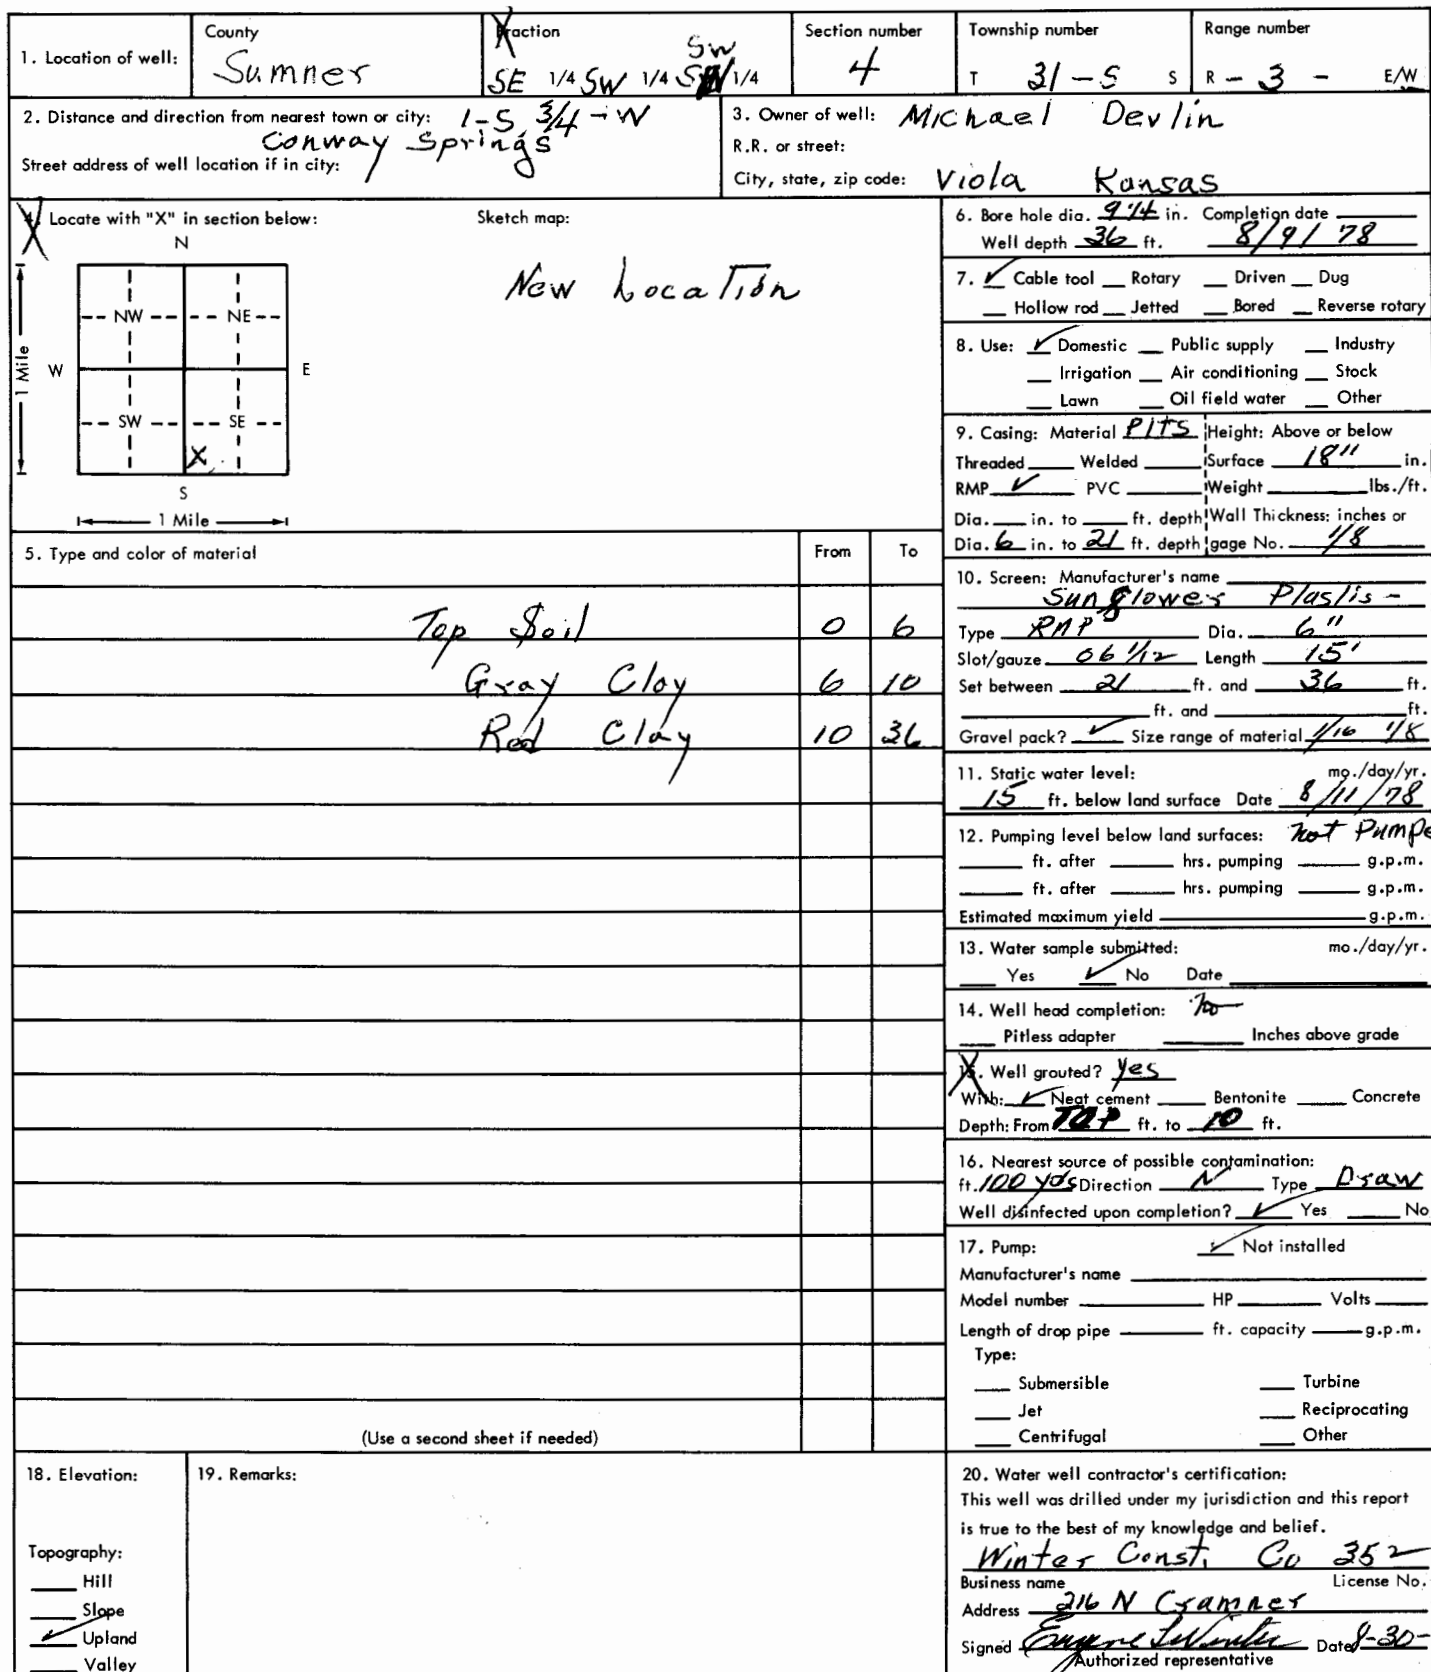 County Fraction Section number Township number Range number
1. Location of well: Sumner SE 1/4 SW 1/4 SW 1/4 4 T 31-S S R - 3 - E/W
SW
2. Distance and direction from nearest town or city: 1-S 3/4-W
Conway Springs
Street address of well location if in city:
3. Owner of well: Michael Devlin
R.R. or street:
City, state, zip code: Viola Kansas
4. Locate with "X" in section below: Sketch map:
N
New Location
NW NE
W E
1 Mile
SW SE
X
S
1 Mile
5. Type and color of material From To
Top Soil 0 6
Gray Clay 6 10
Red Clay 10 36
(Use a second sheet if needed)
6. Bore hole dia. 9 1/4 in. Completion date
Well depth 36 ft. 8/9/78
7. ✓ Cable tool Rotary Driven Dug
Hollow rod Jetted Bored Reverse rotary
8. Use: ✓ Domestic Public supply Industry
Irrigation Air conditioning Stock
Lawn Oil field water Other
9. Casing: Material Height: Above or below
Threaded Welded Surface 18" in.
RMP ✓ PVC Weight lbs./ft.
Dia. in. to ft. depth Wall Thickness: inches or
Dia. 6 in. to 21 ft. depth gage No. 1/8
10. Screen: Manufacturer's name
Sunflower Plastis -
Type RMP Dia. 6"
Slot/gauze 06 1/12 Length 15'
Set between 21 ft. and 36 ft.
ft. and ft.
Gravel pack? ✓ Size range of material 1/16 1/8
11. Static water level: mo./day/yr.
15 ft. below land surface Date 8/11/78
12. Pumping level below land surfaces: not Pumpe
ft. after hrs. pumping g.p.m.
ft. after hrs. pumping g.p.m.
Estimated maximum yield g.p.m.
13. Water sample submitted: mo./day/yr.
Yes ✓ No Date
14. Well head completion: no
Pitless adapter Inches above grade
15. Well grouted? yes
With: ✓ Neat cement Bentonite Concrete
Depth: From TOP ft. to 10 ft.
16. Nearest source of possible contamination:
ft. 100 yds Direction N Type Draw
Well disinfected upon completion? ✓ Yes No
17. Pump: ✓ Not installed
Manufacturer's name
Model number HP Volts
Length of drop pipe ft. capacity g.p.m.
Type:
Submersible Turbine
Jet Reciprocating
Centrifugal Other
18. Elevation: 19. Remarks:
Topography:
Hill
Slope
✓ Upland
Valley
20. Water well contractor's certification:
This well was drilled under my jurisdiction and this report
is true to the best of my knowledge and belief.
Winter Const. Co 352
Business name License No.
Address 216 N Cramner
Signed Eugene Winter Date 8-30-
Authorized representative